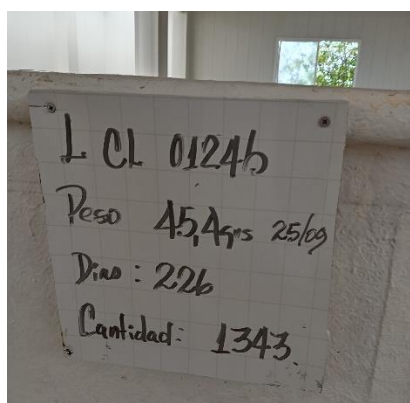 L CL 0124b
Peso 45,4grs 25/09
Dias: 226
Cantidad: 1343.